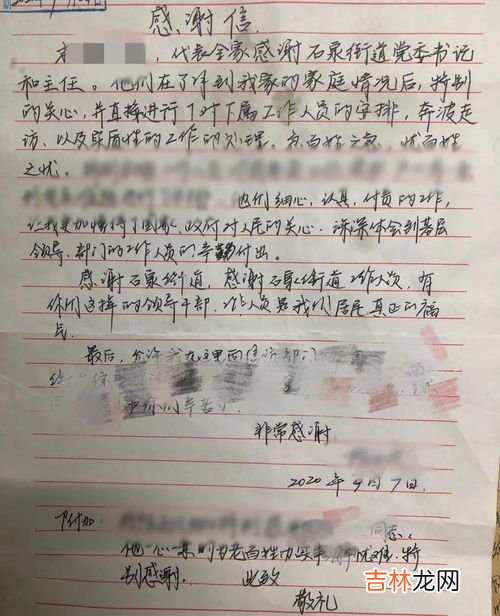 感谢信
本
，代表全家感谢石泉街道党委书记
和主任。他们在了解到我家的家庭情况后，特别
的关心，并直接进行了对下属工作人员的安排，奔波走
访、以及实质性的工作的处理。急百姓之急、忧百姓
之忧。
他们细心，认真，付责的工作，
让我更加懂得了国家、政府对人民的关心。深深体会到基层
领导、部门的工作人员的辛勤付出。
感谢石泉街道，感谢石泉街道工作人员，有
你们这样的领导干部、工作人员是我们居民真正的福
气。
最后，允许我在这里向信访部门
你们辛苦了
非常感谢
2020年9月7日.
下附加
同志，
他一心
为老百姓办实事，解忧难，特
别感谢。 此致
敬礼
吉林龙网